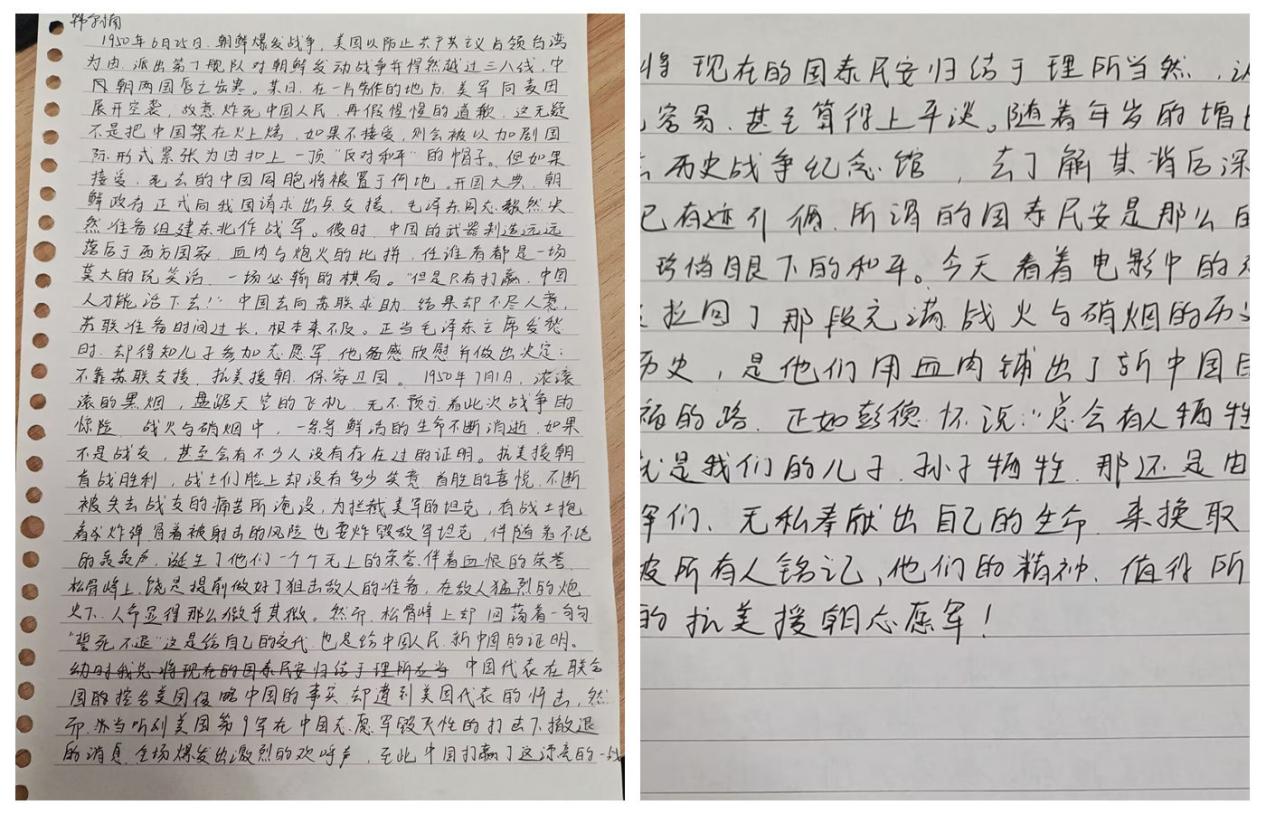 1950年6月25日.朝鲜爆发战争,美国以防止共产共主义占领台湾
为由.派出第7舰队对朝鲜发动战争并悍然越过三八线,中
朝两国唇亡齿寒。某日.在一片劳作的地方.美军向麦田
展开空袭,故意炸死中国人民,再假惺惺的道歉.这无疑
不是把中国架在火上烤,如果不接受,则会被以加剧国
际形式紧张为由扣上一顶"反对和平"的帽子。但如果
接受.死去的中国同胞将被置于何地.开国大典.朝
鲜政府正式向我国请求出兵支援,毛泽东同志毅然决
然准备组建东北作战军。彼时.中国的武器制造远远
落后于西方国家.血肉与炮火的比拼.任谁看都是一场
莫大的玩笑话.一场必输的棋局。"但是只有打赢,中国
人才能活下去!"中国去向苏联求助.结果却不尽人意,
苏联准备时间过长,根本来不及。正当毛泽东主席发愁
时.却得知儿子参加志愿军.他备感欣慰并做出决定:
不靠苏联支援.抗美援朝.保家卫国。1950年7月1日,滚滚
滚的黑烟,盘踞天空的飞机.无不预示着此次战争的
惊险.战火与硝烟中,一条条鲜活的生命不断消逝.如果
不是战友,甚至会有不少人没有存在过的证明。抗美援朝
首战胜利,战士们脸上却没有多少笑意.首胜的喜悦.不断
被失去战友的痛苦所淹没,为拦截美军的坦克,有战士抱
着炸弹冒着被射击的风险也要炸毁敌军坦克,伴随着不
的轰轰声,诞生了他们一个个无上的荣誉.伴着血恨的荣誉.
松骨峰上.饶是提前做好了狙击敌人的准备,在敌人猛烈的炮
火下.人命显得那么微乎其微。然而.松骨峰上却回荡着一句句
"誓死不退"这是给自己的交代.也是给中国人民.新中国的证明。
幼时我总将现在的国泰民安归结于理所应当 中国代表在联合
国的控告美国侵略中国的事实.却遭到美国代表的抨击,然
而.当听到美国第9军在中国志愿军毁灭性的打击下撤退
的消息.全场爆发出激烈的欢呼声,至此中国打赢了这漂亮的一战
将现在的国泰民安归结于理所当然.认
容易.甚至算得上平淡。随着年岁的增
历史战争纪念馆,去了解其背后深
已有迹引循.所谓的国泰民安是那么
珍惜眼下的和平。今天看着电影中的
拉回了那段充满战火与硝烟的历史
历史,是他们用血肉铺出了新中国
福的路.正如彭德怀说:"总会有人牺牲
就是我们的儿子.孙子牺牲.那还是由
军们.无私奉献出自己的生命.来换取
被所有人铭记、他们的精神.值得所
的抗美援朝志愿军!